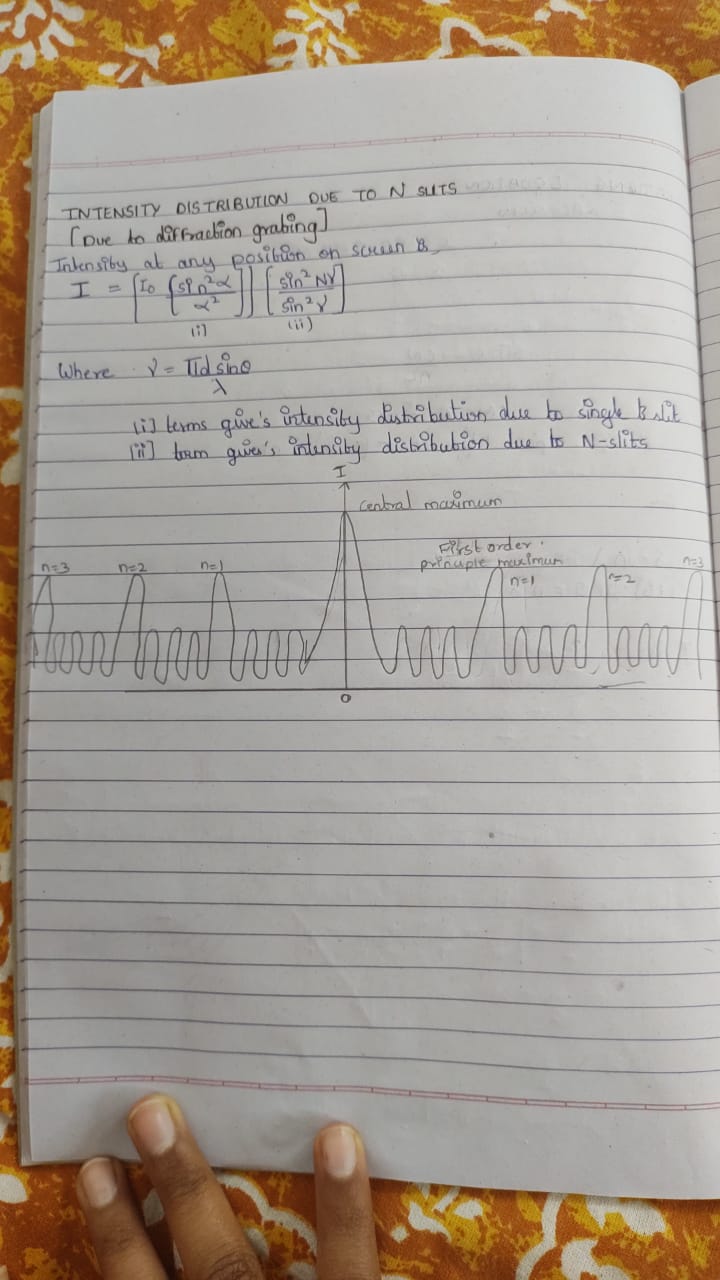 INTENSITY DISTRIBUTION DUE TO N SLITS
[Due to diffraction grating]
Intensity at any position on screen is
I = [I0 [sin²α/α²]] [sin²Nγ/sin²γ]
(i) (ii)
Where γ = πd sinθ/λ
(i) terms give's intensity distribution due to single slit
(ii) term gives's intensity distribution due to N-slits
I
central maximum
First order
principle maximum
n=3 n=2 n=1 n=1 n=2 n=3
0